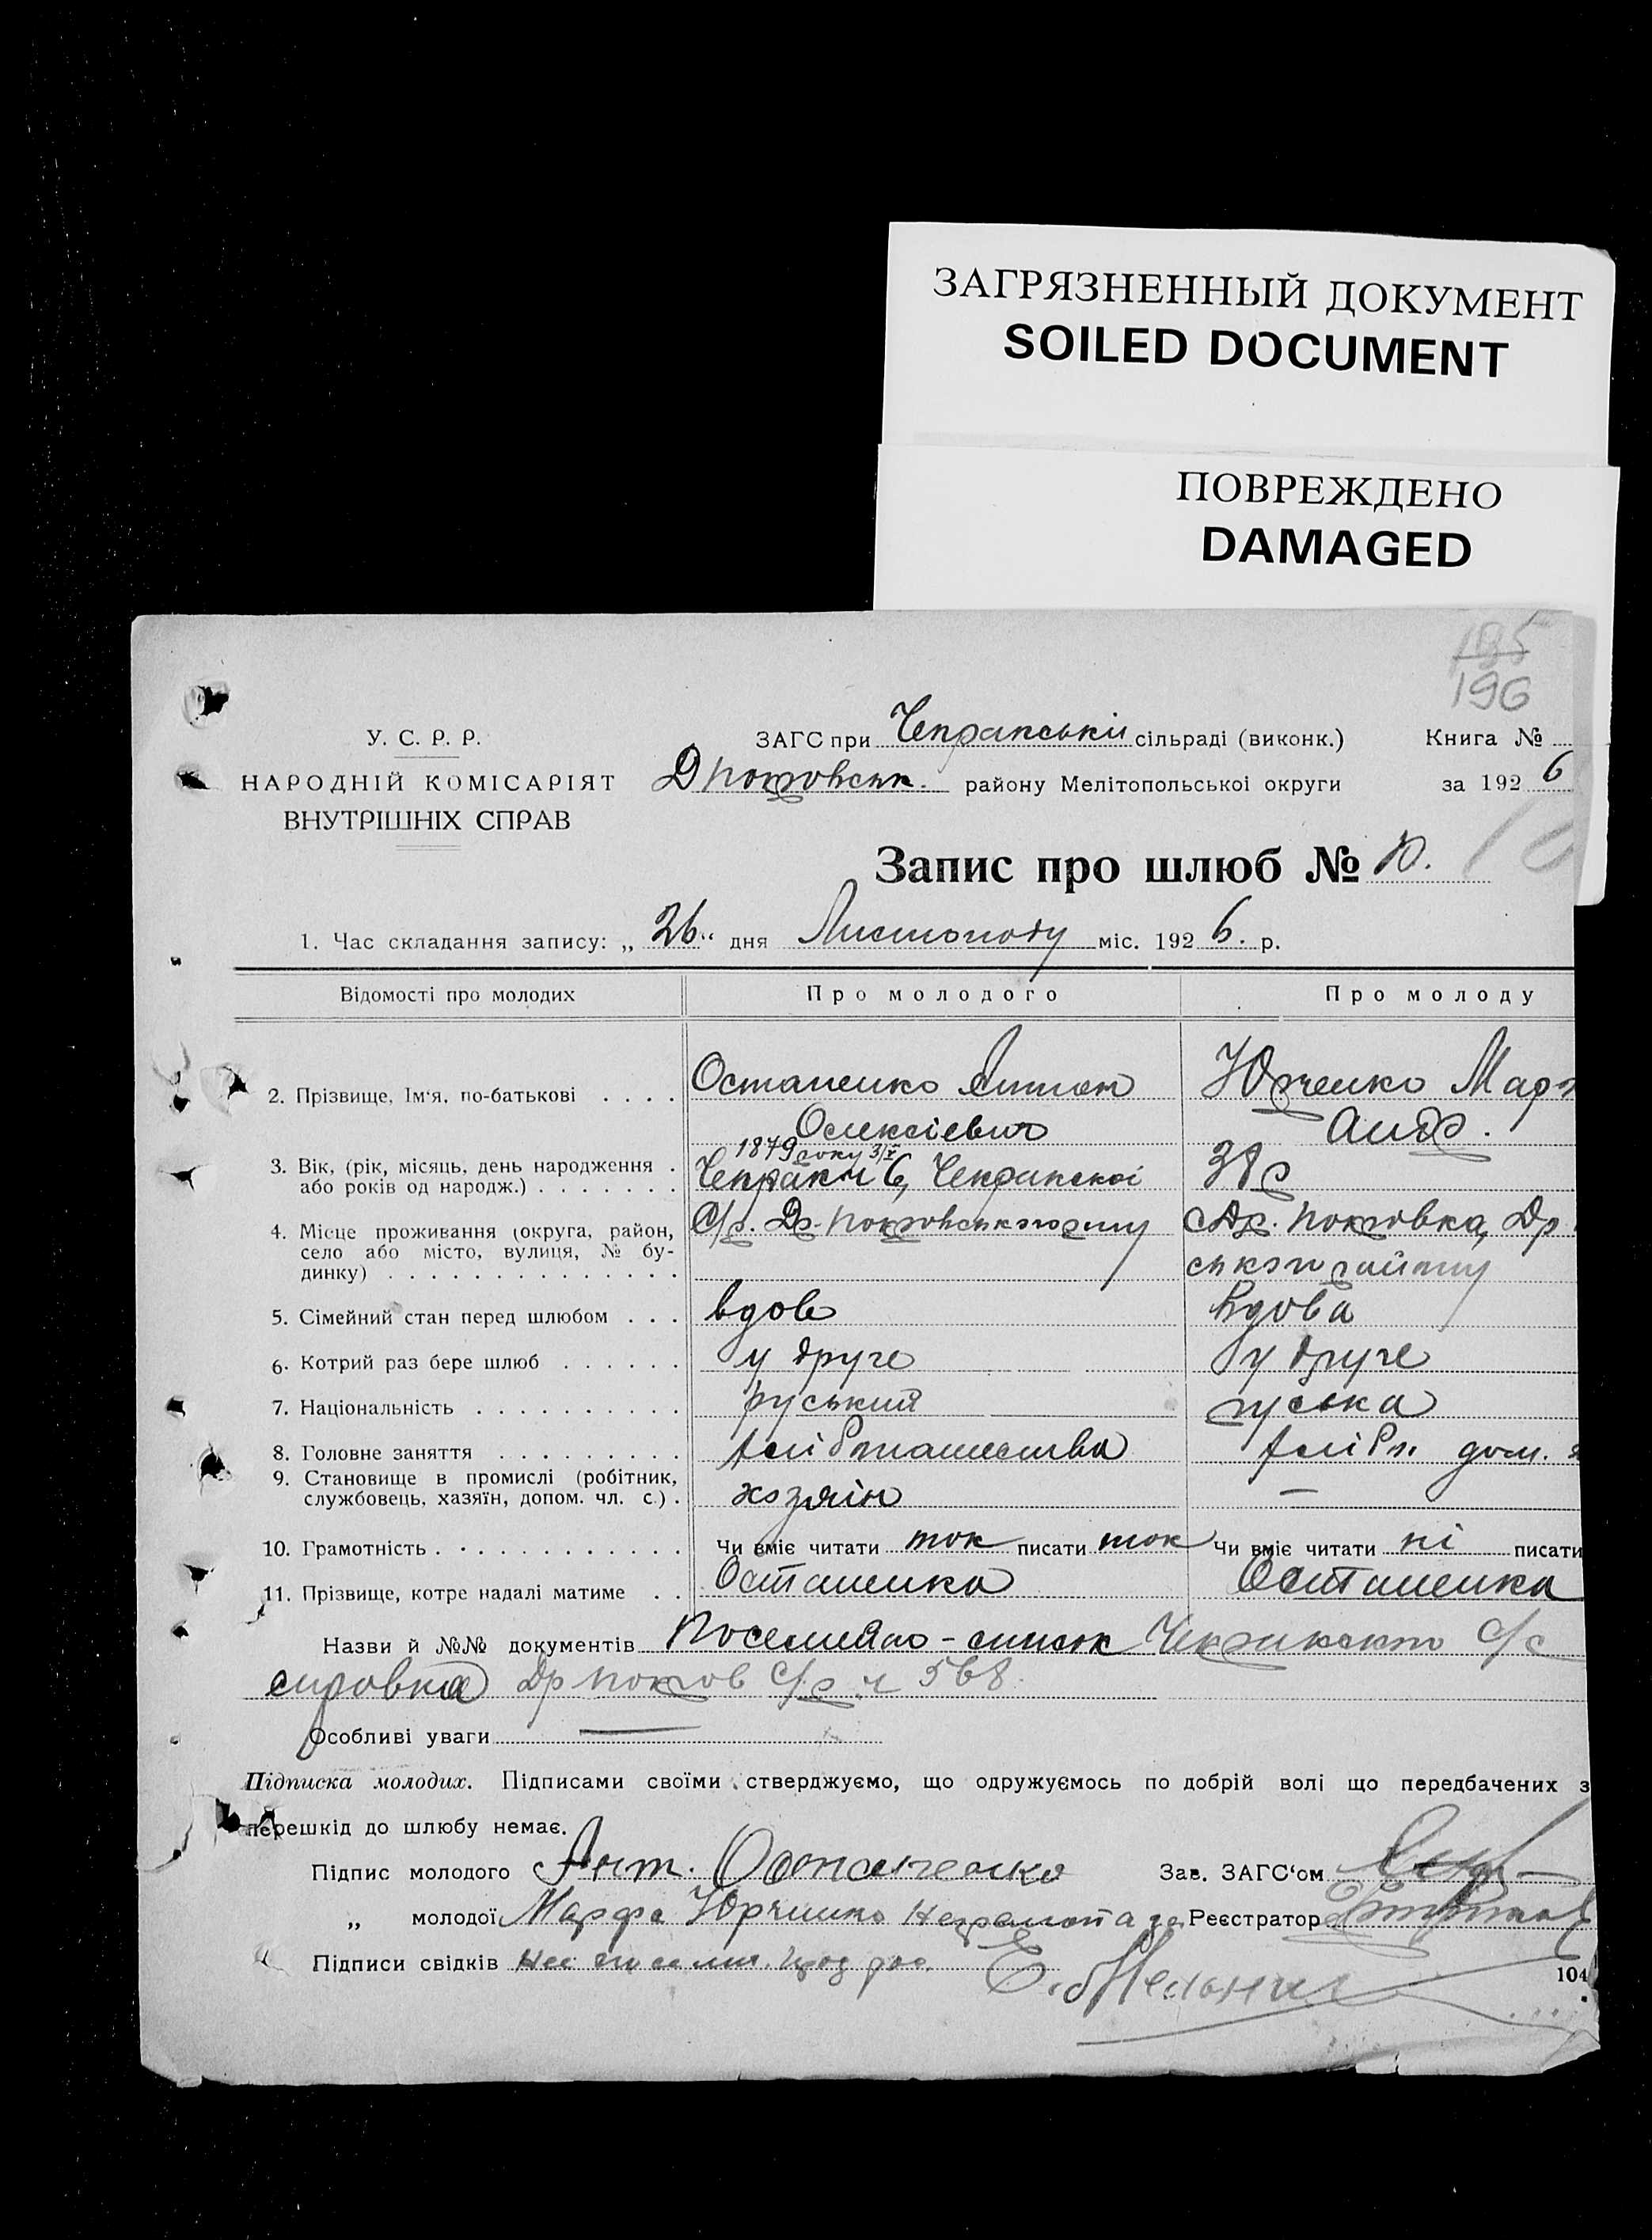 ЗАГРЯЗНЕННЫЙ ДОКУМЕНТ
SOILED DOCUMENT
ПОВРЕЖДЕНО
DAMAGED
195
196
У. С. Р. Р.
НАРОДНІЙ КОМІСАРІЯТ
ВНУТРІШНІХ СПРАВ
ЗАГС при сільраді (виконк.)
району Мелітопольської округи
Книга №
за 1926
Запис про шлюб № 10.
1. Час складання запису: „26„ дня Листопаду міс. 1926. р.
Відомості про молодих
Про молодого
Про молоду
2. Прізвище, Ім'я, по-батькові . . . .
Остапенко Антон
Олексіевич
Юрченко Мар
Андр.
3. Вік, (рік, місяць, день народження .
або років од народж.) . . . . . . .
1879 року 3/X
Чепраки
38 р
4. Місце проживання (округа, район,
село або місто, вулиця, № бу-
динку) . . . . . . . . . . . . . .
С/р. Др. Покровського р-ну
с Др. Покровка, Др
ського району
5. Сімейний стан перед шлюбом . . .
вдов
вдова
6. Котрий раз бере шлюб . . . . . .
у друге
у друге
7. Національність . . . . . . . . . .
руський
руська
8. Головне заняття . . . . . . . . .
хлібопашество
хлібп. дом.
9. Становище в промислі (робітник,
службовець, хазяїн, допом. чл. с.) .
хозяін
—
10. Грамотність . . . . . . . . . . . .
Чи вміє читати так писати так
Чи вміє читати ні писати
11. Прізвище, котре надалі матиме . .
Остапенко
Остапенко
Назви й №№ документів Поселяно-список С/р
справка Др Покров С/р ч 568
Особливі уваги —
Підписка молодих. Підписами своїми стверджуємо, що одружуємось по добрій волі що передбачених з
перешкід до шлюбу немає.
Підпис молодого Ант. Остапенко
Зав. ЗАГС'ом
„ молодої Марфа Юрченко Неграмотна за
Реєстратор
Підписи свідків
104